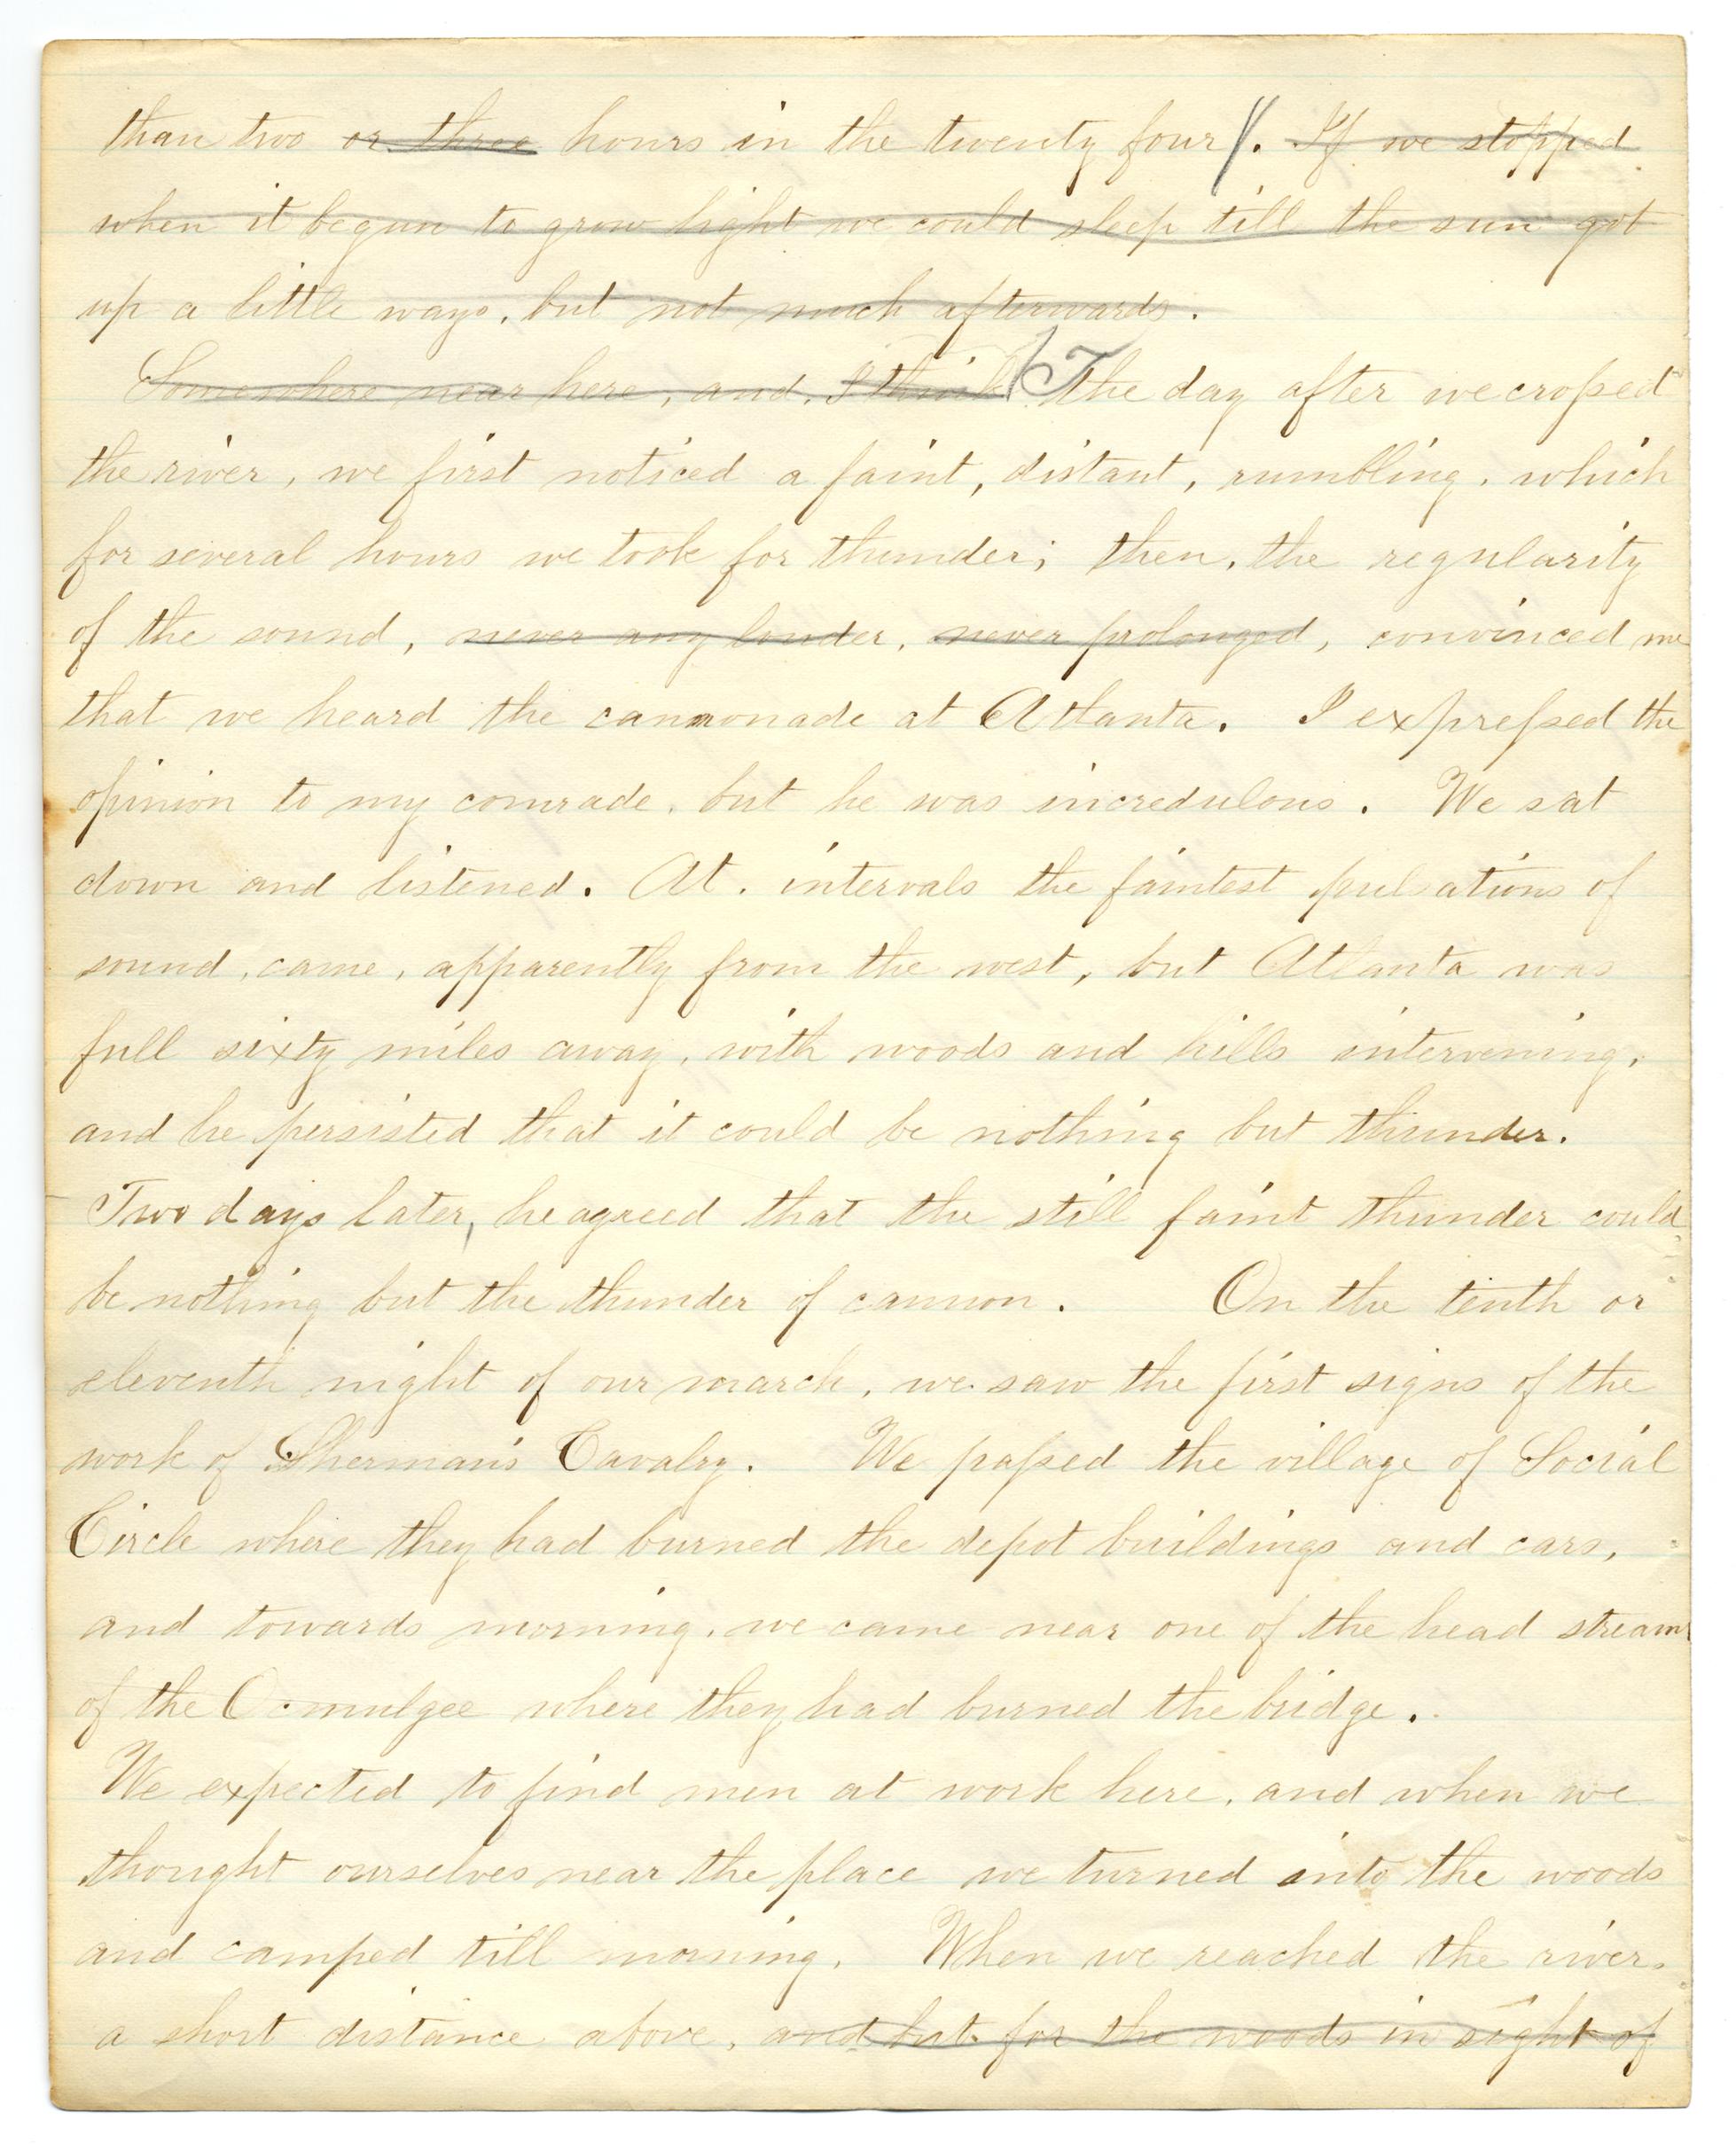 than two or three hours in the twenty four. If we stopped
when it begun to grow light we could sleep till the sun got
up a little ways, but not much afterwards.
Somewhere near here, and, I think The day after we crossed
the river, we first noticed a faint, distant, rumbling, which
for several hours we took for thunder; then, the regularity
of the sound, never any louder, never prolonged, convinced me
that we heard the cannonade at Atlanta. I expressed the
opinion to my comrade, but he was incredulous. We sat
down and listened. At. intervals the faintest pulsations of
sound, came, apparently from the west, but Atlanta was
full sixty miles away, with woods and hills intervening,
and he persisted that it could be nothing but thunder.
Two days later, he agreed that the still faint thunder could
be nothing but the thunder of cannon. On the tenth or
eleventh night of our march, we saw the first signs of the
work of Sherman's Cavalry. We passed the village of Social
Circle where they had burned the depot buildings and cars,
and towards morning, we came near one of the head streams
of the Ocmulgee where they had burned the bridge.
We expected to find men at work here, and when we
thought ourselves near the place we turned into the woods
and camped till morning. When we reached the river,
a short distance above, and but for the woods in sight of